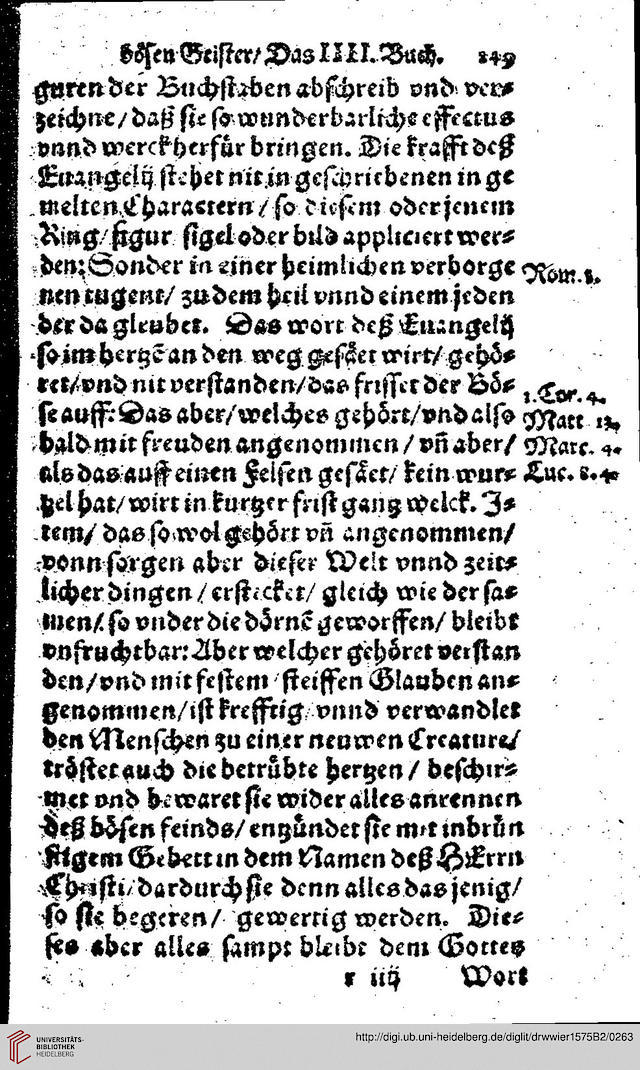 bösen Geister/ Das IIII. Buch. 249
guren der Buchstaben abschreib vnd ver⸗
zeichne/ daß sie so wunderbarliche effectus
vnnd werck herfür bringen. Die krafft deß
Euangelij stehet nit in geschriebenen in ge
melten Charactern/ so diesem oder jenem
Ring/ figur sigel oder bild appliciert wer⸗
den: Sonder in einer heimlichen verborge
Rom. 1.
nen tugent/ zu dem heil vnnd einem jeden
der da gleubet. Das wort deß Euangelij
so im hertzẽ an den weg gesäet wirt/ gehö⸗
ret/ vnd nit verstanden/ das frisset der Bö⸗
1. Cor. 4.
se auff: Das aber/ welches gehört/ vnd also
Matt 13.
bald mit freuden angenommen/ vñ aber/
Marc. 4.
als das auff einen Felsen gesäet/ kein wur⸗
Luc. 8. 4.
tzel hat/ wirt in kurtzer frist gantz welck. J⸗
tem/ das so wol gehört vñ angenommen/
vonn sorgen aber dieser Welt vnnd zeit⸗
licher dingen/ erstecket/ gleich wie der sa⸗
men/ so vnder die dörnẽ geworffen/ bleibt
vnfruchtbar: Aber welcher gehöret verstan
den/ vnd mit festem steiffen Glauben an⸗
genommen/ ist krefftig/ vnnd verwandlet
den Menschen zu einer neuwen Creature/
tröstet auch die betrübte hertzen/ beschir⸗
met vnd bewaret sie wider alles anrennen
deß bösen feinds/ entzündet sie mit inbrün
stigem Gebett in dem Namen deß HErrn
Christi/ dardurch sie denn alles das jenig/
so sie begeren/ gewertig werden. Die⸗
ses aber alles sampt bleibt dem Gottes
r iiij Wort
UNIVERSITÄTS-
BIBLIOTHEK
HEIDELBERG
http://digi.ub.uni-heidelberg.de/diglit/drwwier1575B2/0263